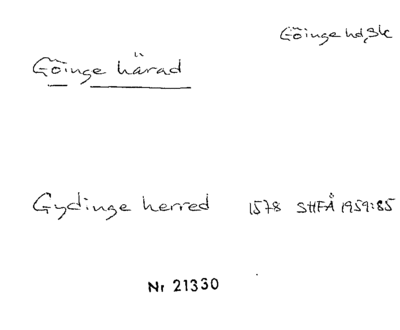 Göinge hd, Sk
Göinge härad
Gydinge herred 1578 SHFÅ 1959:85
Nr 21330